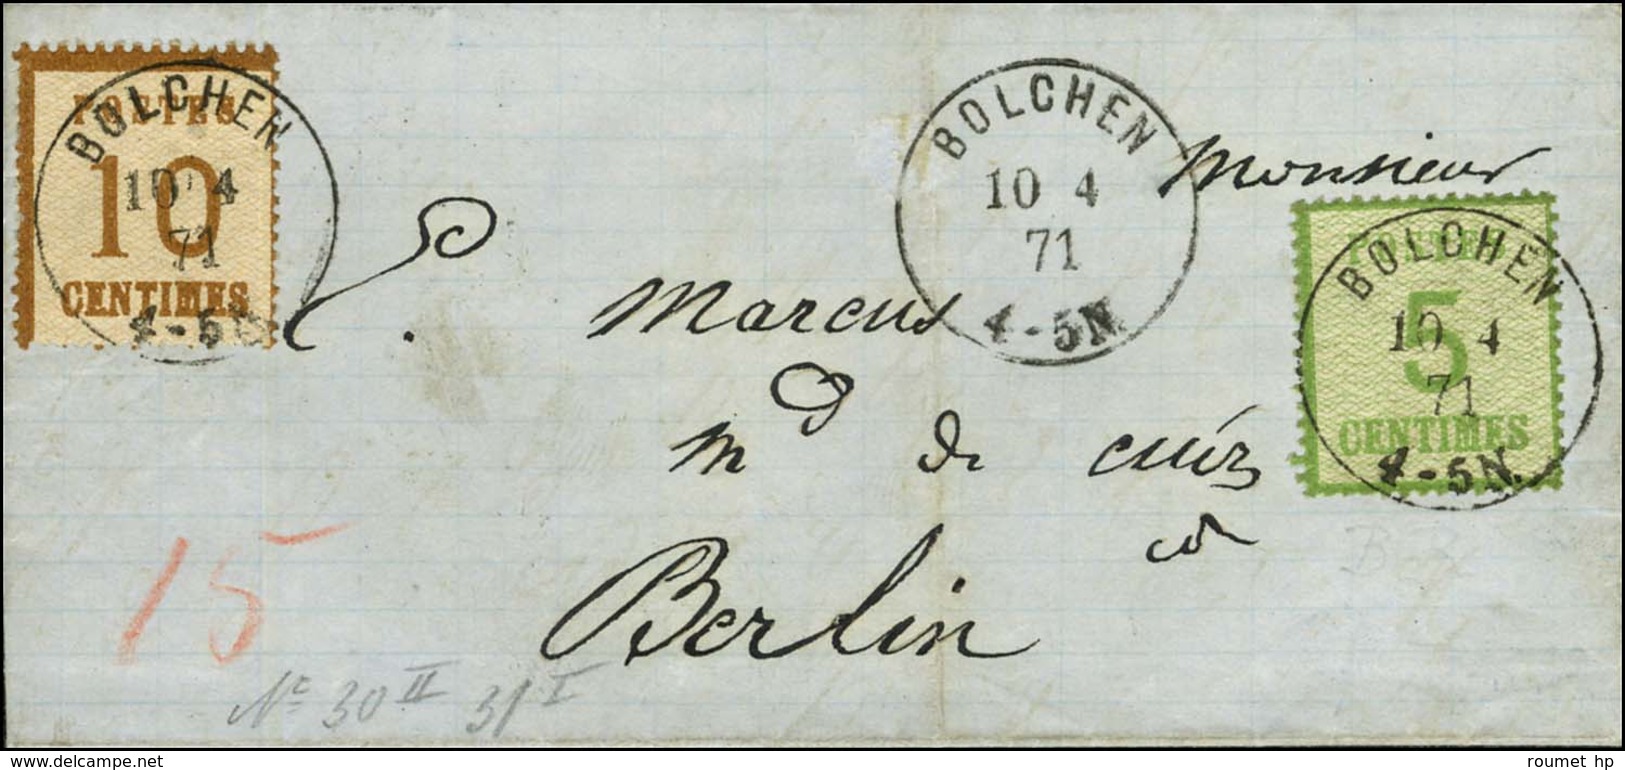 POSTES
10
CENTIMES
BOLCHEN
10 4
71
4-5N.
BOLCHEN
10 4
71
4-5N.
Monsieur
POSTES
5
CENTIMES
BOLCHEN
10 4
71
4-5N.
Marcus
md de cuirs
Berlin
15
No 30 II 31 I
roumet hp